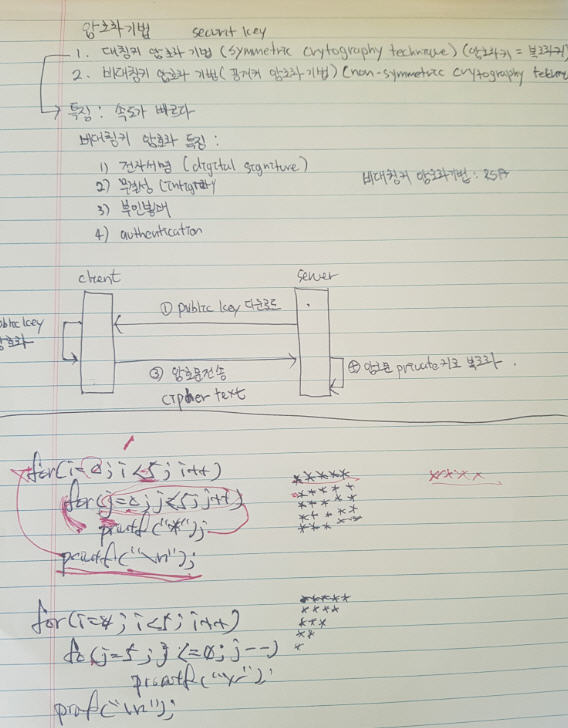 암호화기법 securit key
1. 대칭키 암호화 기법 (symmetric crytography technique) (암호화키 = 복호화키)
2. 비대칭키 암호화 기법 (공개키 암호화 기법) (non-symmetric crytography
특징 : 속도가 빠르다
비대칭키 암호화 특징 :
1) 전자서명 (digital signiture)
비대칭키 암호화기법 : RSA
2) 무결성
3) 부인봉쇄
4) authentication
client server
① public key 다운로드
public key
암호화
③ 암호문전송
④ 암호문 private 키로 복호화.
cipher text
for(i=0; i<5; i++)
*****
****
for(j=0; j<5; j++)
*****
*****
printf("*");
*****
*****
printf("\n");
for(i=0; i<5; i++)
*****
****
***
for(j=5; j<=0; j--)
**
*
printf("*");
printf("\n");